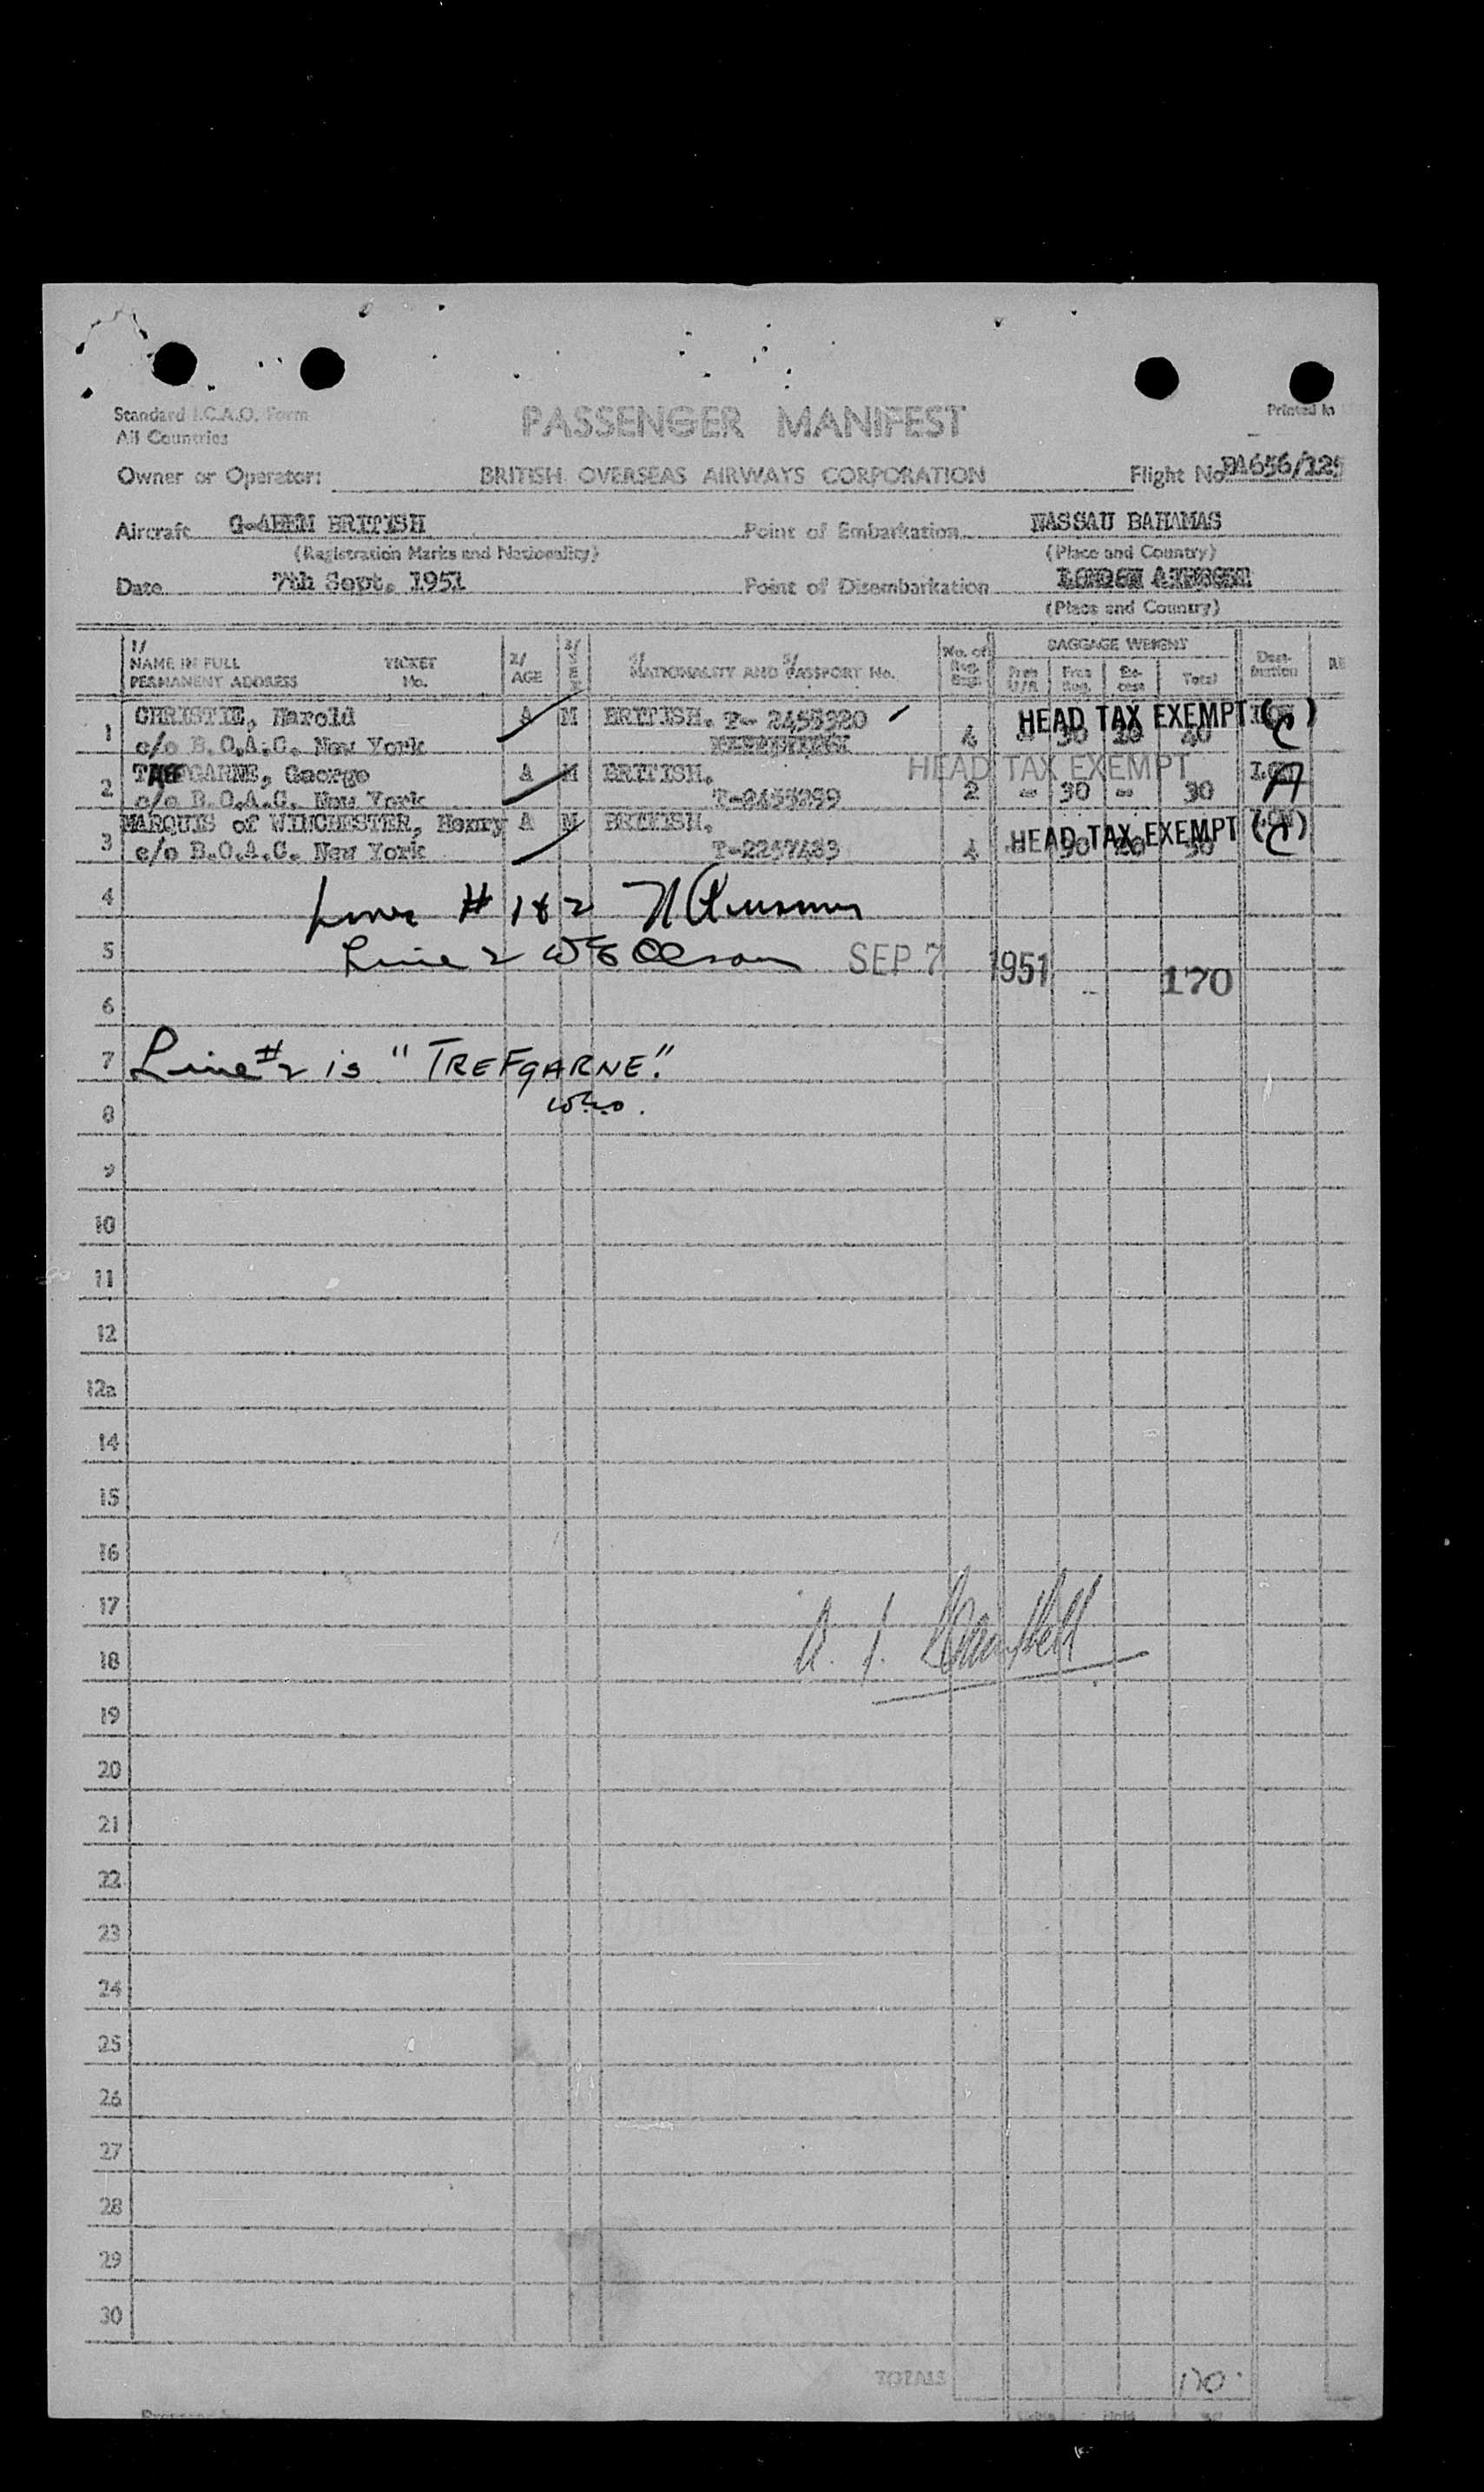 Standard I.C.A.O. Form
All Countries
PASSENGER MANIFEST
Printed in
Owner or Operator: BRITISH OVERSEAS AIRWAYS CORPORATION Flight No.
Aircraft BRITISH Point of Embarkation NASSAU BAHAMAS
(Registration Marks and Nationality) (Place and Country)
Date 7th Sept. 1951 Point of Disembarkation LONDON AIRPORT
(Place and Country)
1/ NAME IN FULL PERMANENT ADDRESS TICKET No. 2/ AGE 3/ SEX 4/ 5/ NATIONALITY AND PASSPORT No. No. of BAGGAGE WEIGHT Free Free Reg. Ex-cess Total Dest-ination
1 CHRISTIE, Harold A M BRITISH. HEAD TAX EXEMPT (C)
c/o B.O.A.C. New York 4
2 GARNE, George A M BRITISH. HEAD TAX EXEMPT LON A
c/o B.O.A.C. New York T-2455259 2 - 30 - 30
3 MARQUIS of WINCHESTER, Henry A M BRITISH. HEAD TAX EXEMPT (C)
c/o B.O.A.C. New York T-2257483 4
4
# 1 & 2
5
Line 2 Olson SEP 7 1951
170
6
7 Line #2 is "TREFGARNE."
8
9
10
11
12
12a
14
15
16
17
18
19
20
21
22
23
24
25
26
27
28
29
30
TOTALS 170